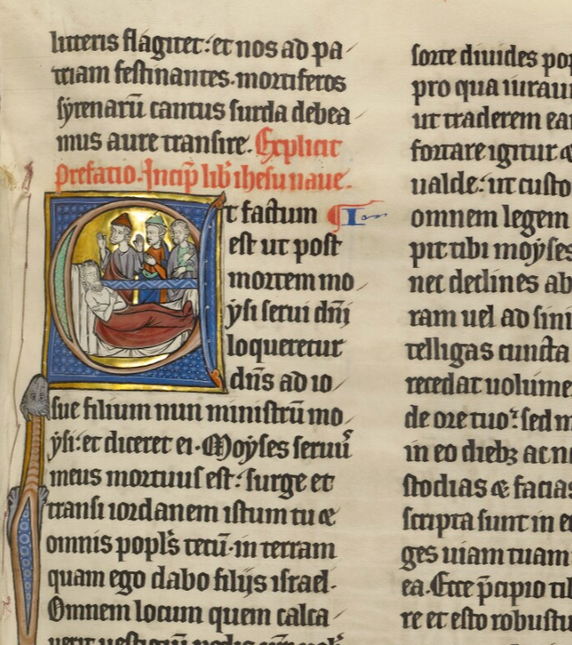 litteris flagitet: et nos ad pa
triam festinantes. mortiferos
syrenarū cantus surda debea
mus aure transire. Explicit
prefatio. Incip̄ lib̄ ihesu naue.
Et factum I
est ut post
mortem mo
ysi serui dn̄i
loqueretur
dn̄s ad io
sue filium nun ministrū mo
ysi: et diceret ei. Moyses seruꝰ
meus mortuus est: surge et
transi iordanem istum tu &
omnis popl̄s tecū. in terram
quam ego dabo filijs israel.
Omnem locum quem calca
uerit uestigiū pedis
sorte diuides pop
pro qua iurau
ut traderem ea
fortare igitur &
ualde: ut custo
omnem legem
pit tibi moyses
nec declines ab
ram uel ad sini
telligas cuncta
recedat uolume
de ore tuo: sed m
in eo dieb; ac n
stodias & facias
scripta sunt in e
ges uiam tuam
ea. Ecce p̄cipio ti
re et esto robustu